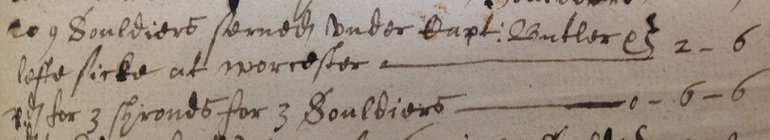 to 9 Souldiers serued vnder Capt: Butler &
lefte sicke at worcester 2 - 6
pd for 3 shrouds for 3 Souldiers 0 - 6 - 6